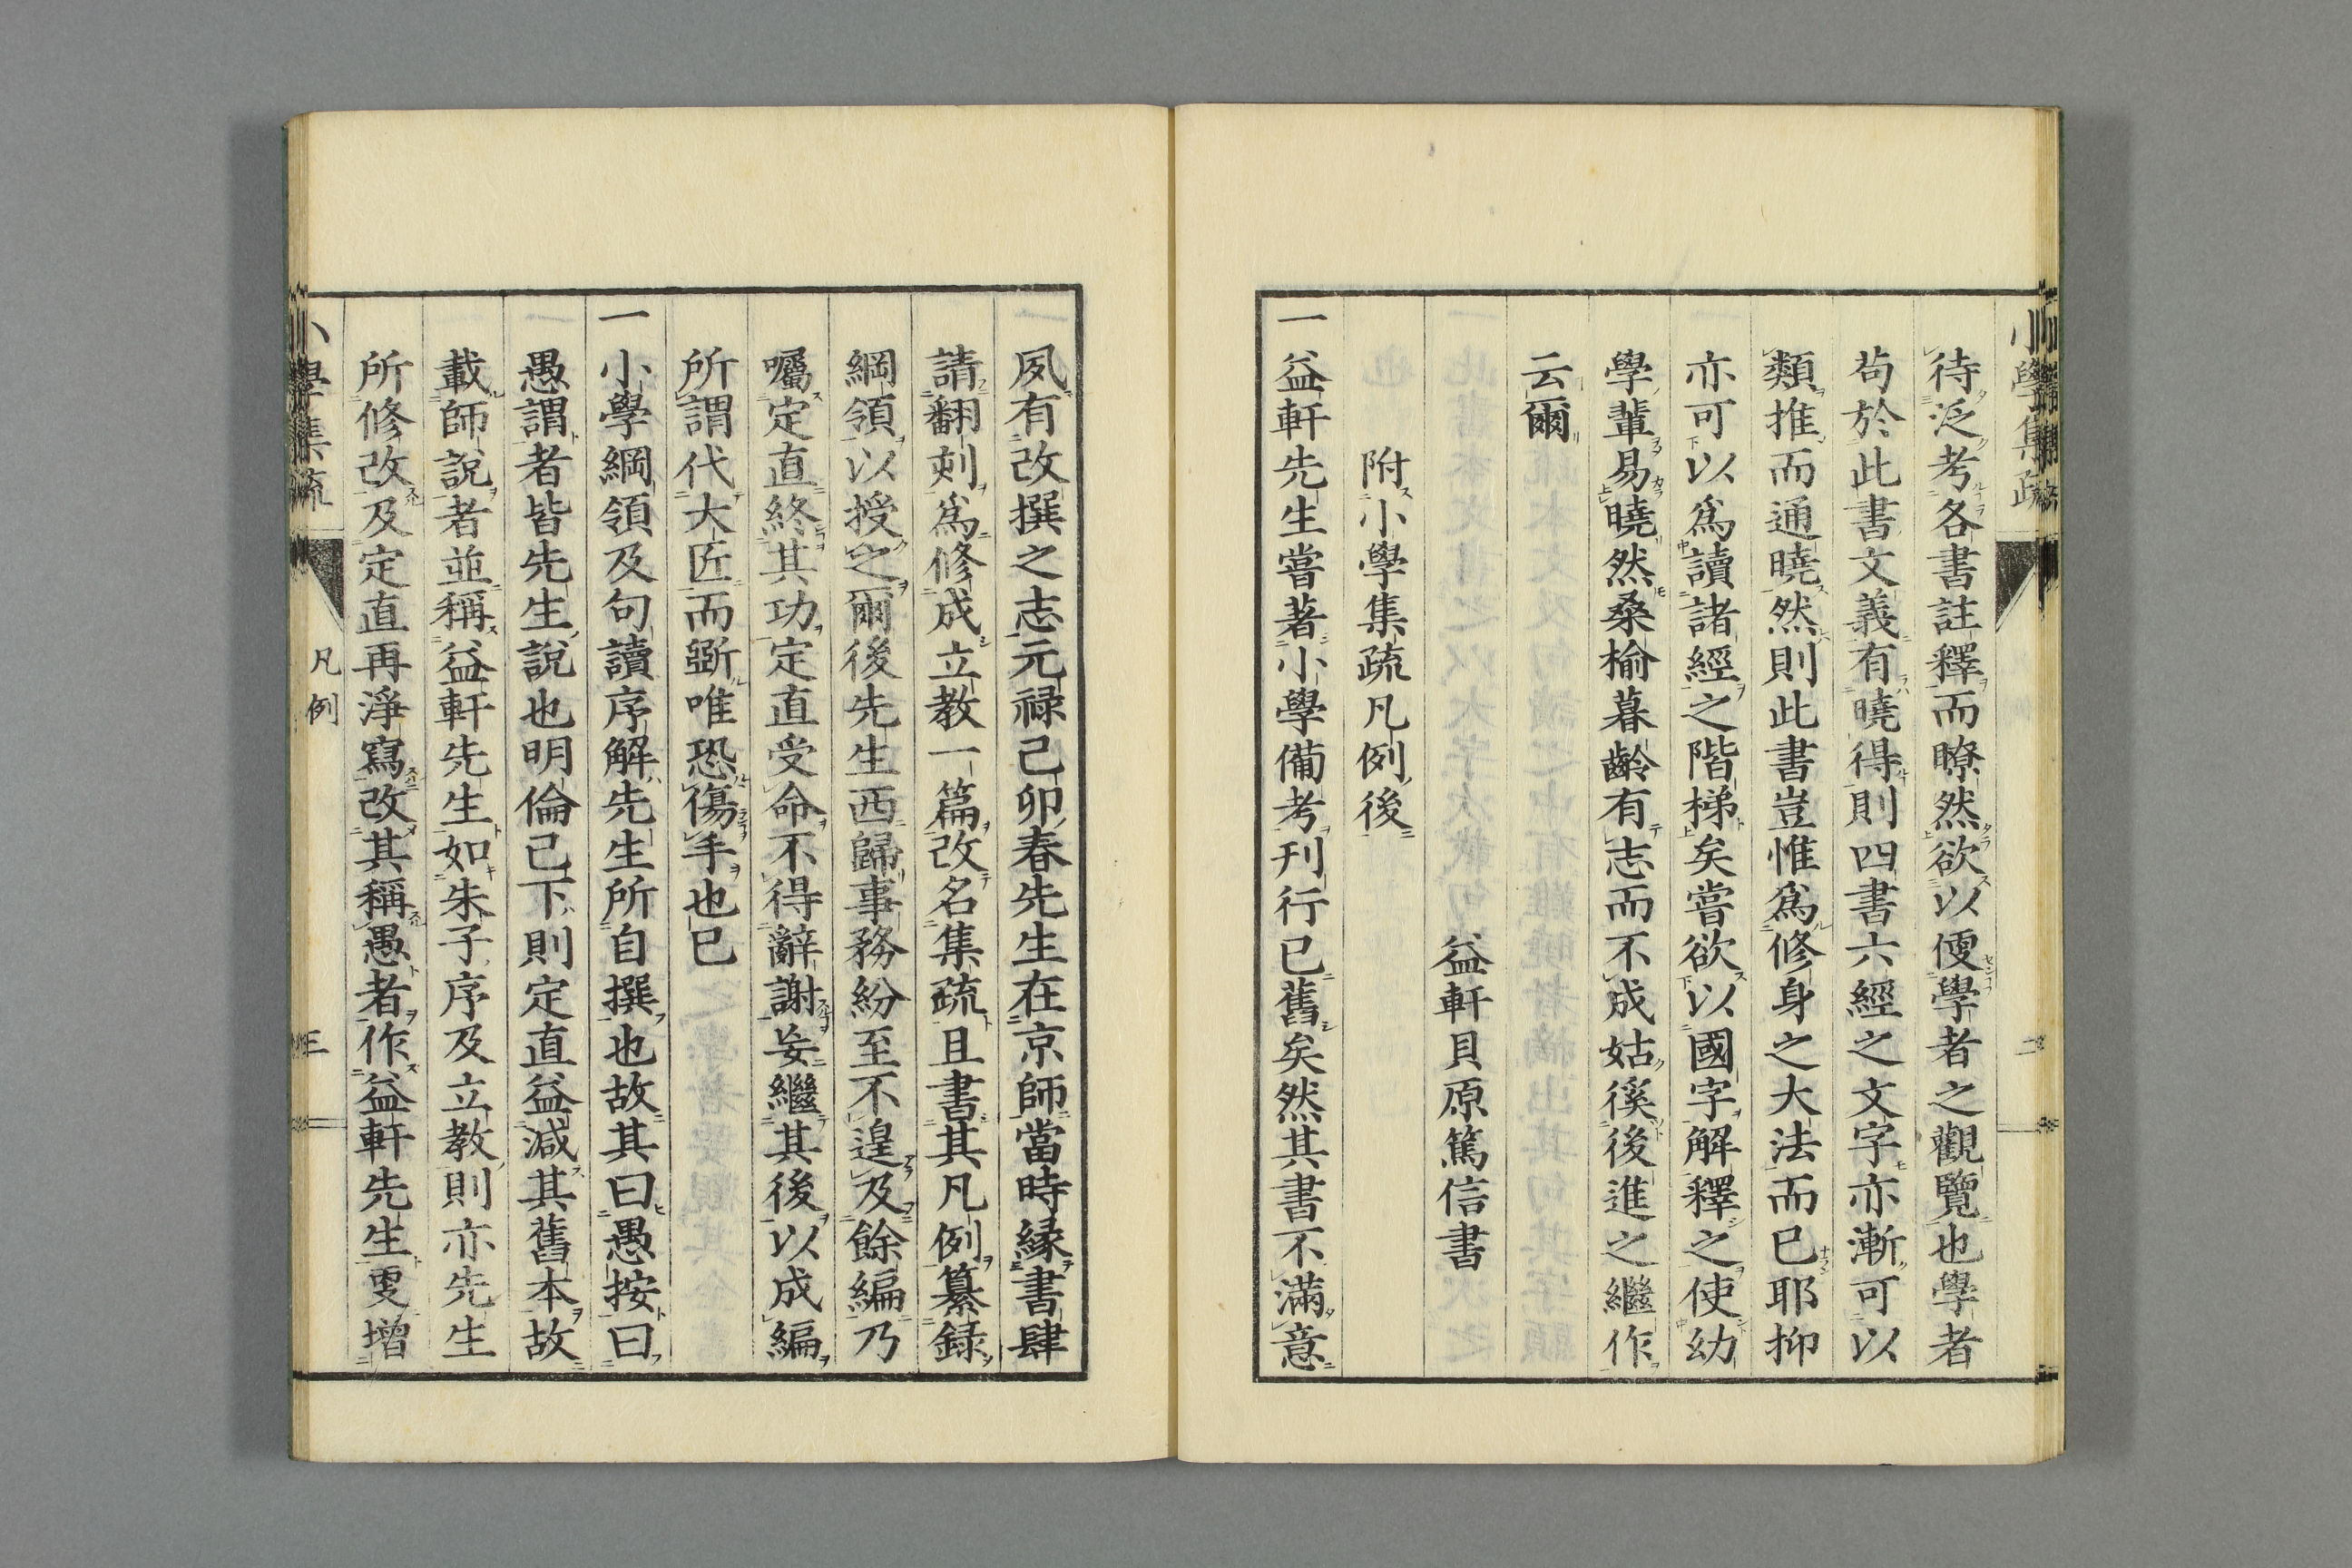 小學集疏
二
待泛考各書註釋而瞭然欲以便學者之觀覽也學者
苟於此書文義有曉得則四書六經之文字亦漸可以
類推而通曉然則此書豈惟爲修身之大法而已耶抑
亦可以爲讀諸經之階梯矣嘗欲以國字解釋之使幼
學輩易曉然桑榆暮齡有志而不成姑徯後進之繼作
云爾
益軒貝原篤信書
附小學集疏凡例後
一益軒先生嘗著小學備考刊行已舊矣然其書不滿意
夙有改撰之志元禄己卯春先生在京師當時縁書肆
請翻刻爲修成立教一篇改名集疏且書其凡例纂錄
綱領以授之爾後先生西歸事務紛至不遑及餘編乃
囑定直終其功定直受命不得辭謝妄繼其後以成編
所謂代大匠而斲唯恐傷手也已
一小學綱領及句讀序解先生所自撰也故其曰愚按曰
愚謂者皆先生說也明倫己下則定直益減其舊本故
載師說者並稱益軒先生如朱子序及立教則亦先生
所修改及定直再淨寫改其稱愚者作益軒先生更增
小學集疏
凡例
三